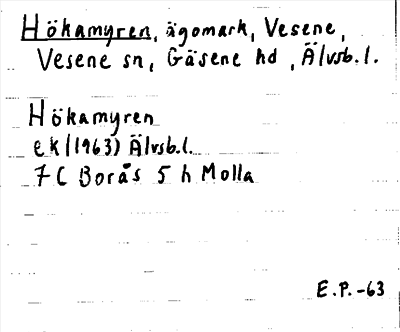 Hökamyren, ägomark, Vesene,
Vesene sn, Gäsene hd, Älvsb.l.
Hökamyren
ek (1963) Älvsb.l.
7C Borås 5 h Molla
E.P.-63